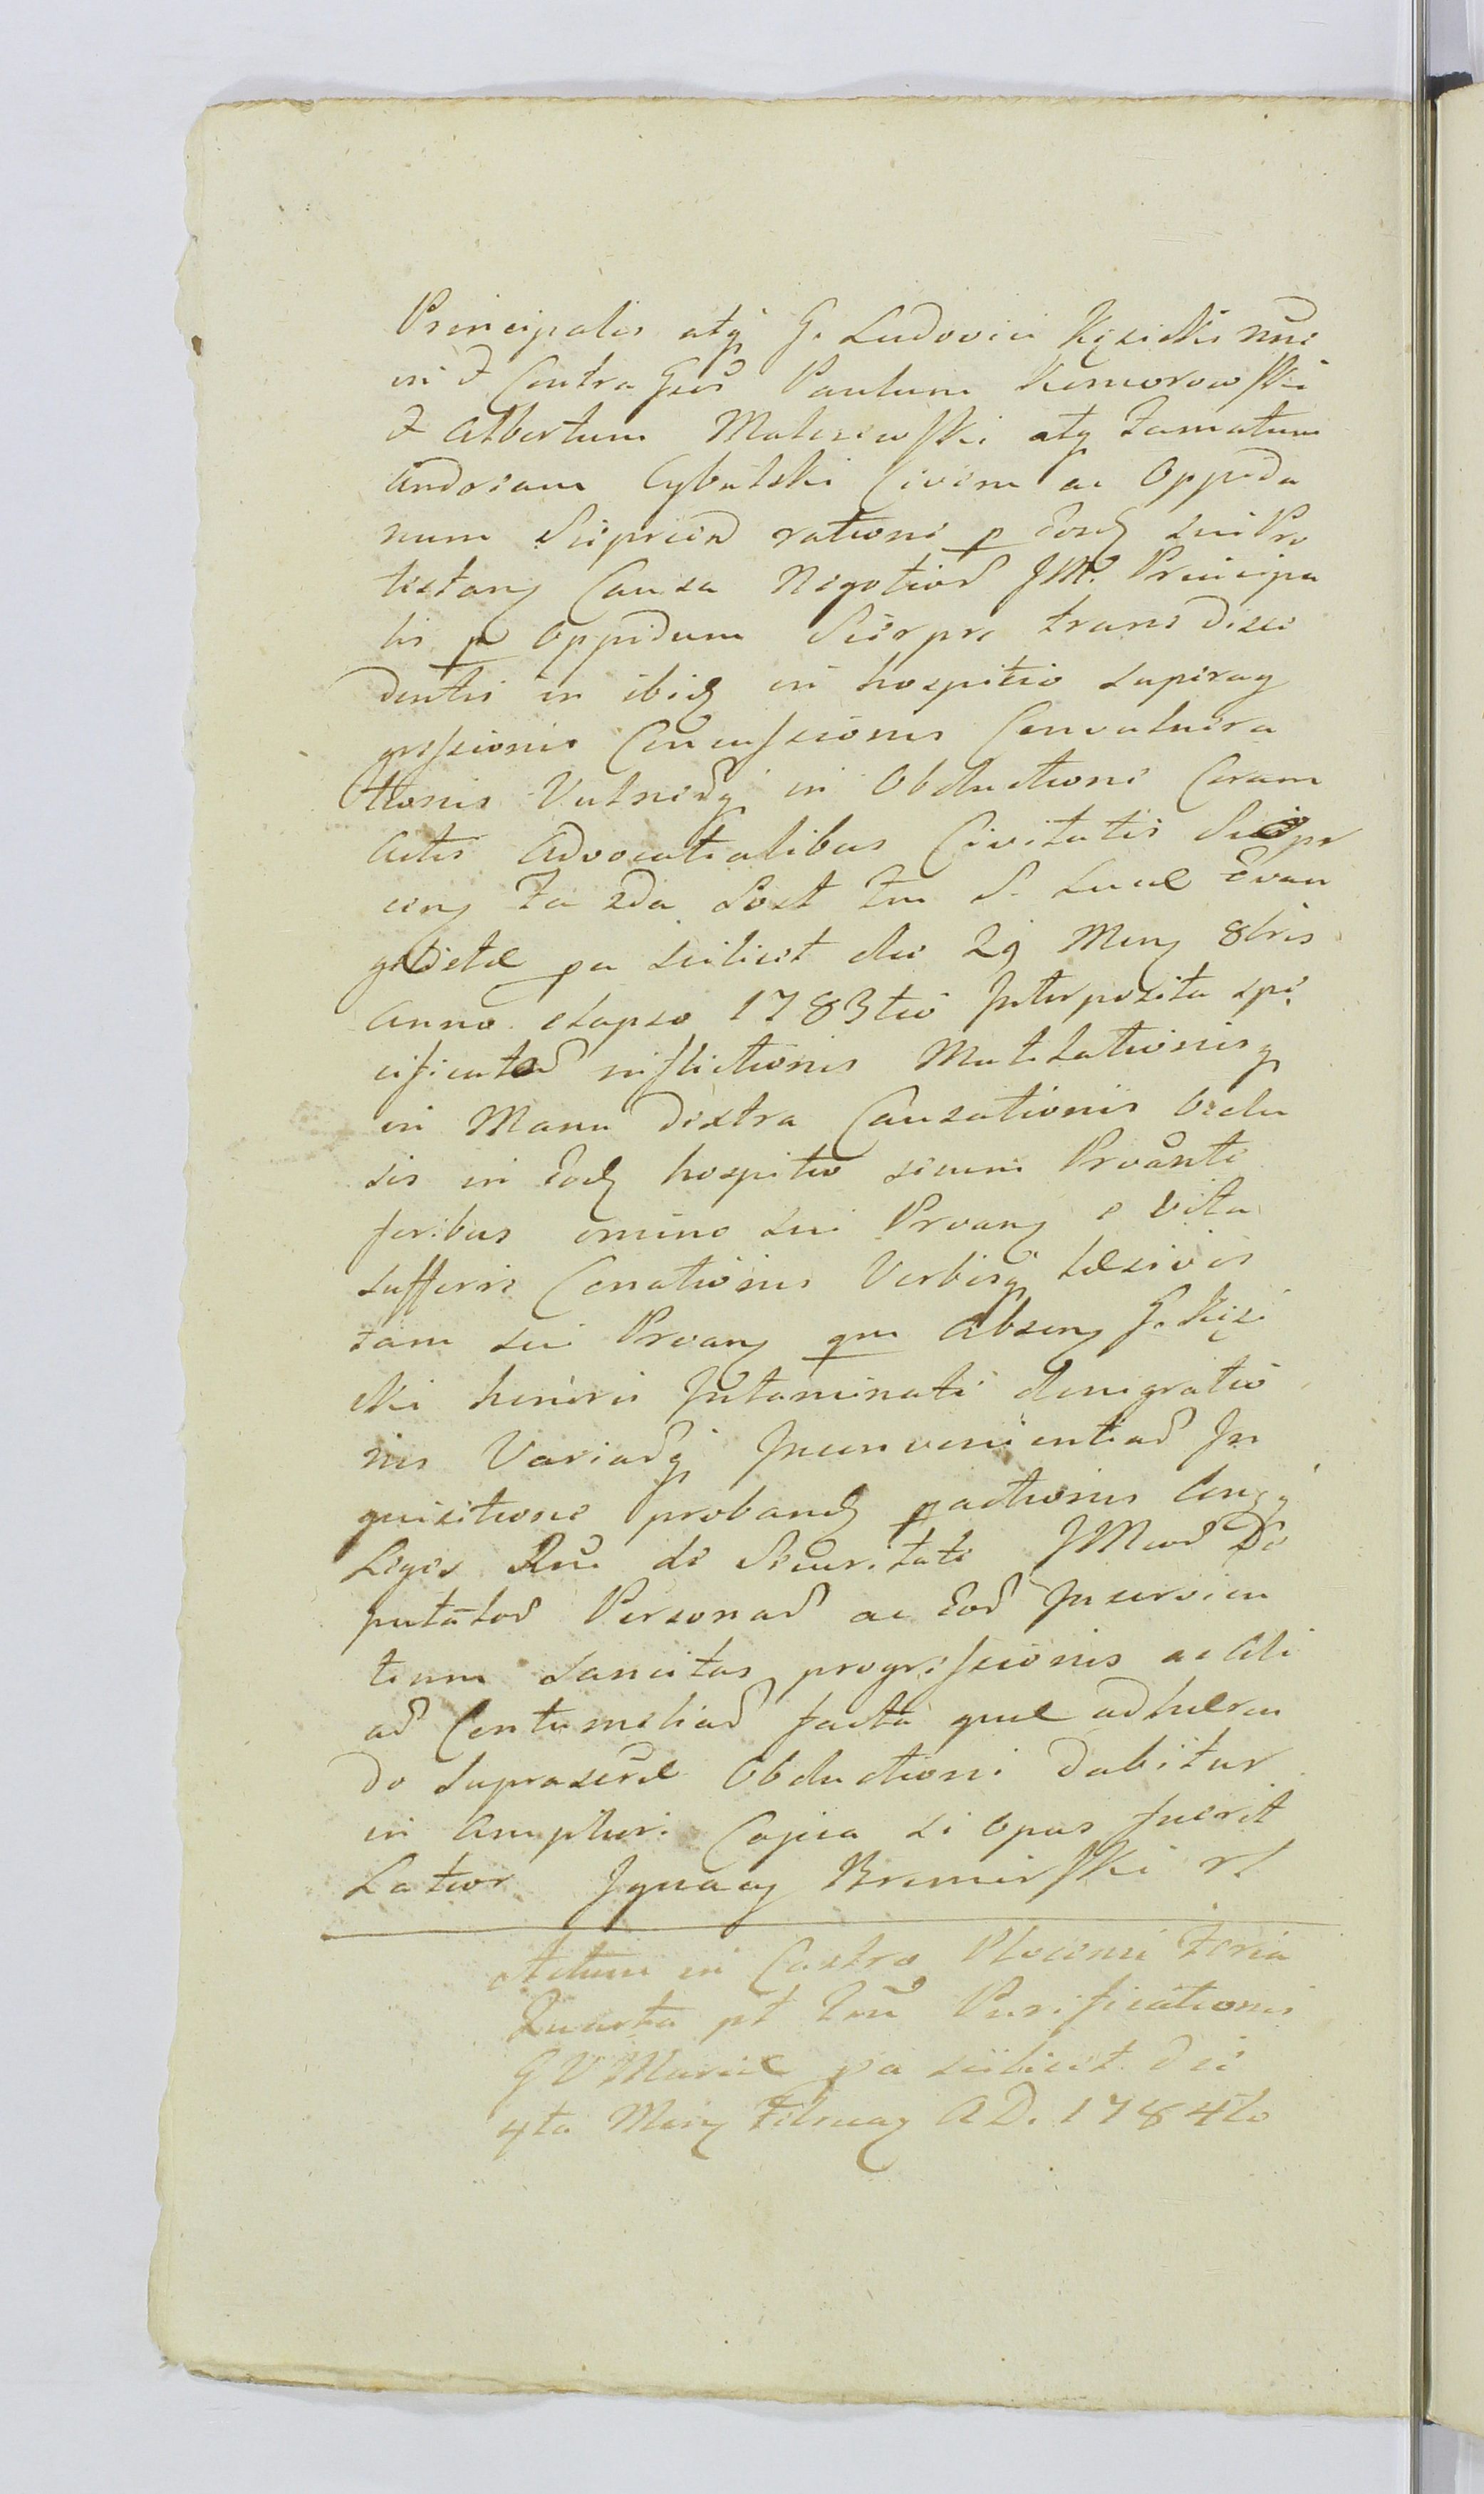 Principalis atq G. Ludovici Kęsicki nne
in & Contra Gsos Paulum Komorowski
& Albertum Maliszewski atq Famatum
Andream Cybulski Civem ac Oppida
num Sieprcen ratione p Eosd sui Pro
testans Causa Negotior JM. Principa
lis p Oppidum Sierprc trans disce
dentis in ibid in hospitio superag
gressionis Concussionis Convulnera
tionis Vulnerq in Obductione Coram
Actis Advocatialibus Civitatis Sierpr
cens Fa 2da Post Fm S. Lucæ Evan
gelistæ pa scilicet die 29 Mens 8bris
Anno elapso 1783tio Interposita spe
cificator inflictionis Mutilationisq
in Manu dextra Causationis Oclu
sis in Eod hospitio secum Proante
foribus omino sui Proans e vita
sufferre Conationis Verbisq læsivis
tam sui Proans qm Absens G. Kęsi
cki honoris Intaminati denigratio
nis Variarq Inconvenientiar In
quisitione proband pactionis Ang
Leges Rni de Securitate JMior De
putator Personar ac Eor Inservien
tium sancitas progressionis ac Ali
ar Contumeliar facta quæ adhæren
do suprascræ Obductioni dabitur
in Ampliori Copia si opus fuerit
Lator Ignacy Bromirski
Actum in Castro Plocensi Feria
Quarta pt Fm Purificationis
B V Mariæ pa scilicet die
4ta Mens Februar A D. 1784to